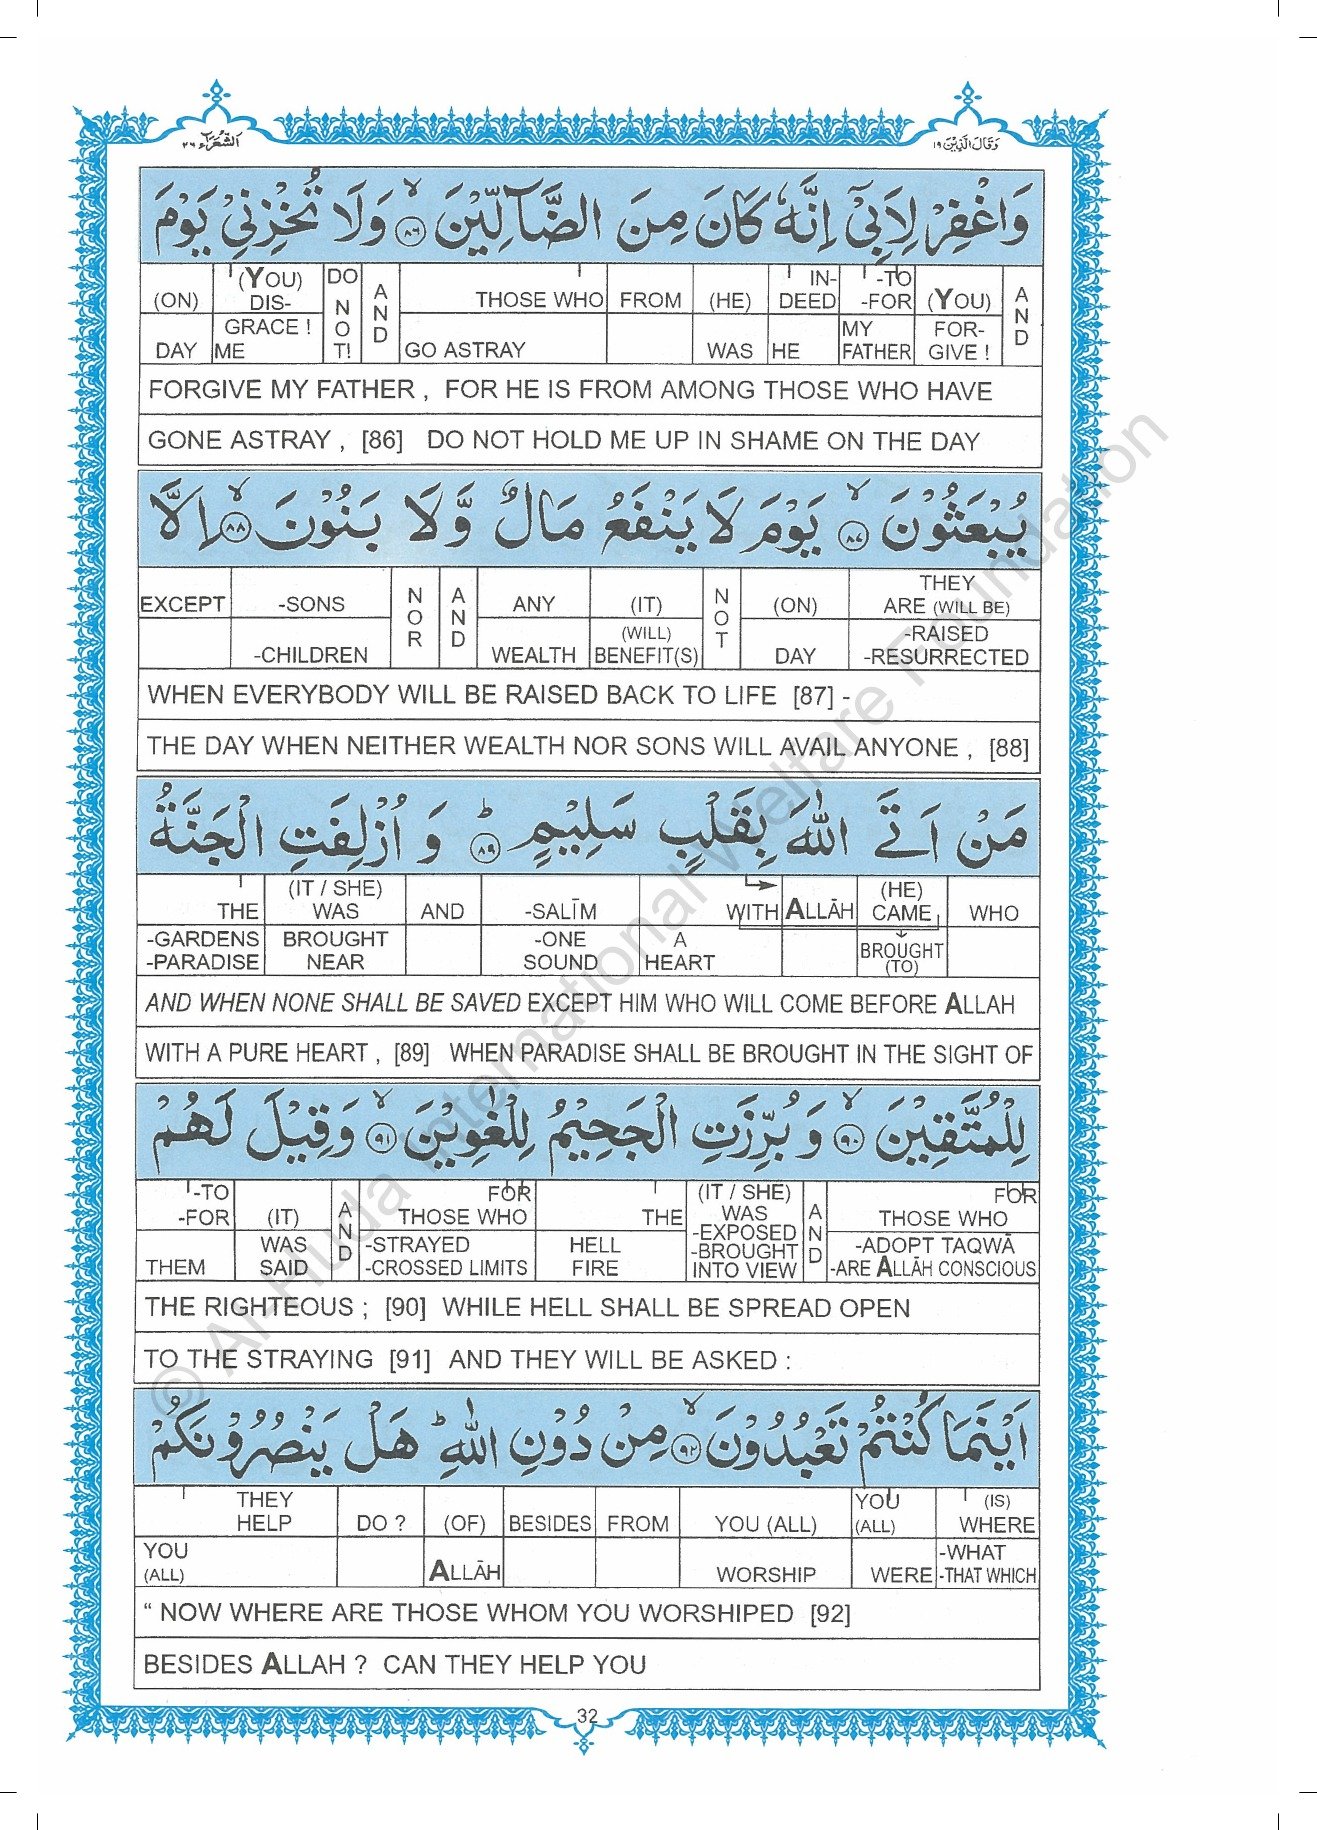 الشُّعَرَآء ٢٦
وَقَالَ الَّذِيْنَ ١٩
وَاغْفِرْ لِاَبِيْٓ اِنَّهٗ كَانَ مِنَ الضَّآلِّيْنَ ۙ‏﴿۸۶﴾ وَلَا تُخْزِنِيْ يَوْمَ
(ON) (YOU) DIS- DO NOT! AND THOSE WHO FROM (HE) IN-DEED -TO -FOR (YOU) AND
DAY GRACE ! ME GO ASTRAY WAS HE MY FATHER FOR-GIVE !
FORGIVE MY FATHER , FOR HE IS FROM AMONG THOSE WHO HAVE
GONE ASTRAY , [86] DO NOT HOLD ME UP IN SHAME ON THE DAY
يُبْعَثُوْنَ ۙ‏﴿۸۷﴾ يَوْمَ لَا يَنْفَعُ مَالٌ وَّلَا بَنُوْنَ ۙ‏﴿۸۸﴾ اِلَّا
EXCEPT -SONS NOR AND ANY (IT) NOT (ON) THEY ARE (WILL BE)
-CHILDREN WEALTH (WILL) BENEFIT(S) DAY -RAISED -RESURRECTED
WHEN EVERYBODY WILL BE RAISED BACK TO LIFE [87] -
THE DAY WHEN NEITHER WEALTH NOR SONS WILL AVAIL ANYONE , [88]
مَنْ اَتَى اللّٰهَ بِقَلْبٍ سَلِيْمٍ ؕ‏﴿۸۹﴾ وَ اُزْلِفَتِ الْجَنَّةُ
THE (IT / SHE) WAS AND -SALĪM WITH ALLĀH (HE) CAME WHO
-GARDENS -PARADISE BROUGHT NEAR -ONE SOUND A HEART BROUGHT (TO)
AND WHEN NONE SHALL BE SAVED EXCEPT HIM WHO WILL COME BEFORE ALLAH
WITH A PURE HEART , [89] WHEN PARADISE SHALL BE BROUGHT IN THE SIGHT OF
لِلْمُتَّقِيْنَ ۙ‏﴿۹۰﴾ وَ بُرِّزَتِ الْجَحِيْمُ لِلْغٰوِيْنَ ۙ‏﴿۹۱﴾ وَقِيْلَ لَهُمْ
-TO -FOR (IT) AND FOR THOSE WHO THE (IT / SHE) WAS AND FOR THOSE WHO
THEM WAS SAID -STRAYED -CROSSED LIMITS HELL FIRE -EXPOSED -BROUGHT INTO VIEW -ADOPT TAQWĀ -ARE ALLĀH CONSCIOUS
THE RIGHTEOUS ; [90] WHILE HELL SHALL BE SPREAD OPEN
TO THE STRAYING [91] AND THEY WILL BE ASKED :
اَيْنَمَا كُنْتُمْ تَعْبُدُوْنَ ۙ‏﴿۹۲﴾ مِنْ دُوْنِ اللّٰهِ ؕ هَلْ يَنْصُرُوْنَكُمْ
THEY HELP DO ? (OF) BESIDES FROM YOU (ALL) YOU (ALL) (IS) WHERE
YOU (ALL) ALLĀH WORSHIP WERE -WHAT -THAT WHICH
“ NOW WHERE ARE THOSE WHOM YOU WORSHIPED [92]
BESIDES ALLAH ? CAN THEY HELP YOU
32
© Al-Huda International Welfare Foundation